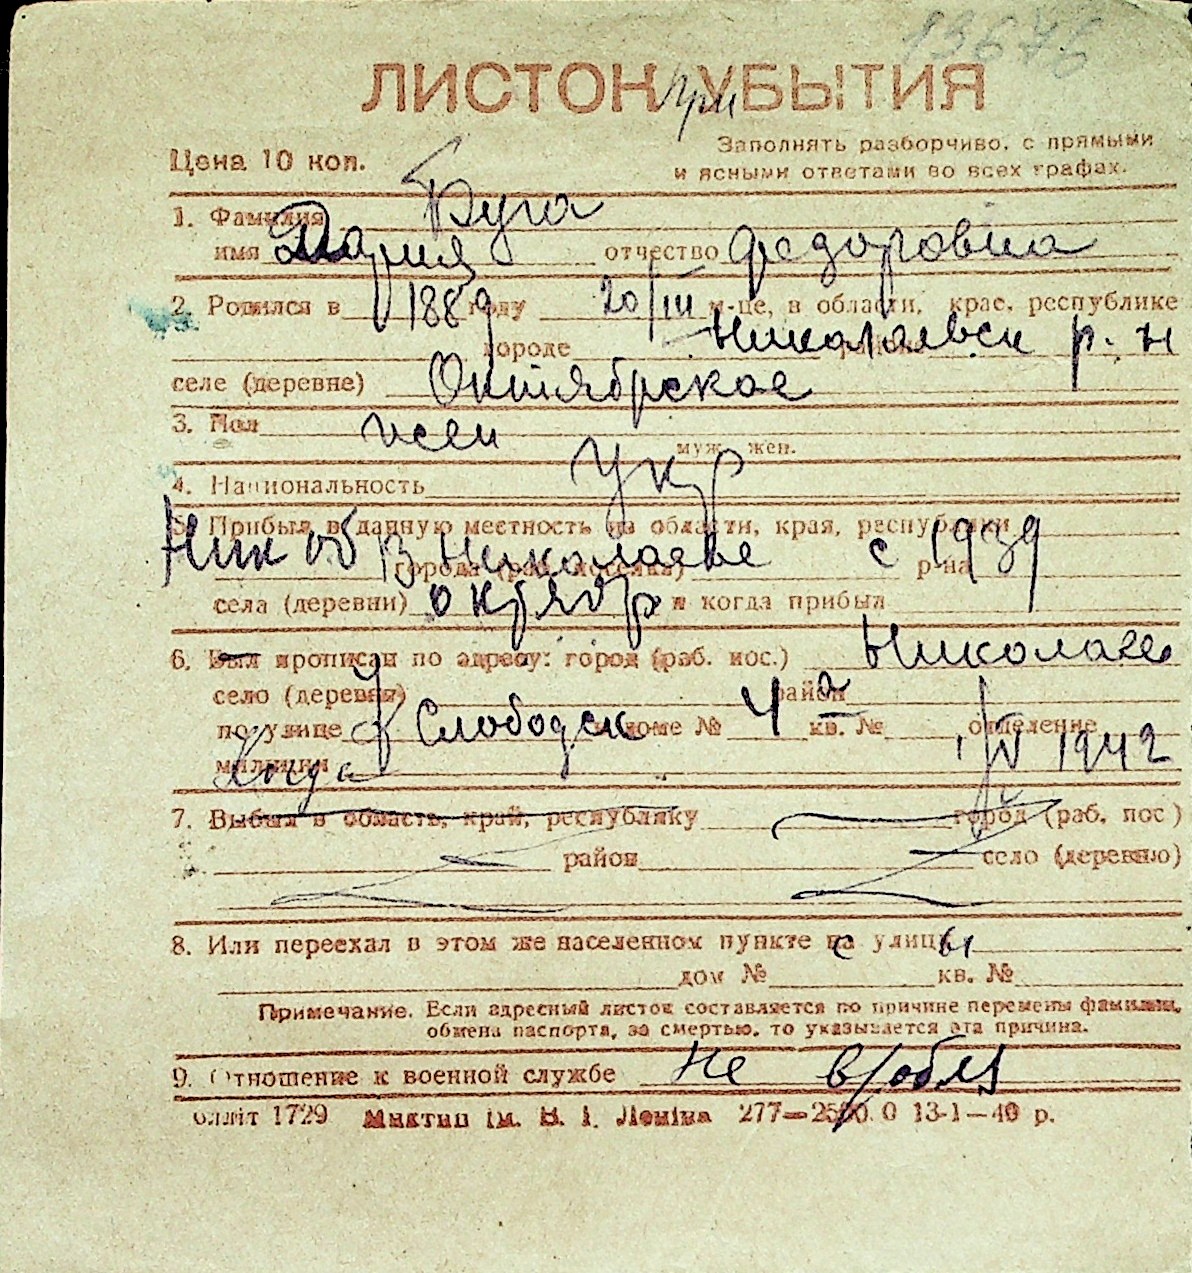 13676
ЛИСТОК при УБЫТИЯ
Цена 10 коп.
Заполнять разборчиво, с прямыми
и ясными ответами во всех графах.
1. Фамилия Буга
имя Мария отчество Федоровна
2. Родился в 1889 году 20/III м-це, в области, крае, республике
городе Николаевск р-н
селе (деревне) Октябрское
3. Пол жен
муж. жен.
4. Национальность укр
5. Прибыл в данную местность из области, края, республики
Ник об в Николаеве с 1939
города (раб. поселка) р-на
села (деревни) октябр и когда прибыл
6. Был прописан по адресу: город (раб. пос.) Николаев
село (деревня) район
по улице Слободск доме № 4а кв. № отделение
милиции Когда 1/IV 1942
7. Выбыл в область, край, республику город (раб. пос)
район село (деревню)
8. Или переехал в этом же населенном пункте на с улицы
дом № кв. №
Примечание. Если адресный листок составляется по причине перемены фамилии,
обмена паспорта, за смертью, то указывается эта причина.
9. Отношение к военной службе не в/обяз
Облліт 1729 Миктип ім. В. І. Леніна 277—2500.0 13-1—40 р.